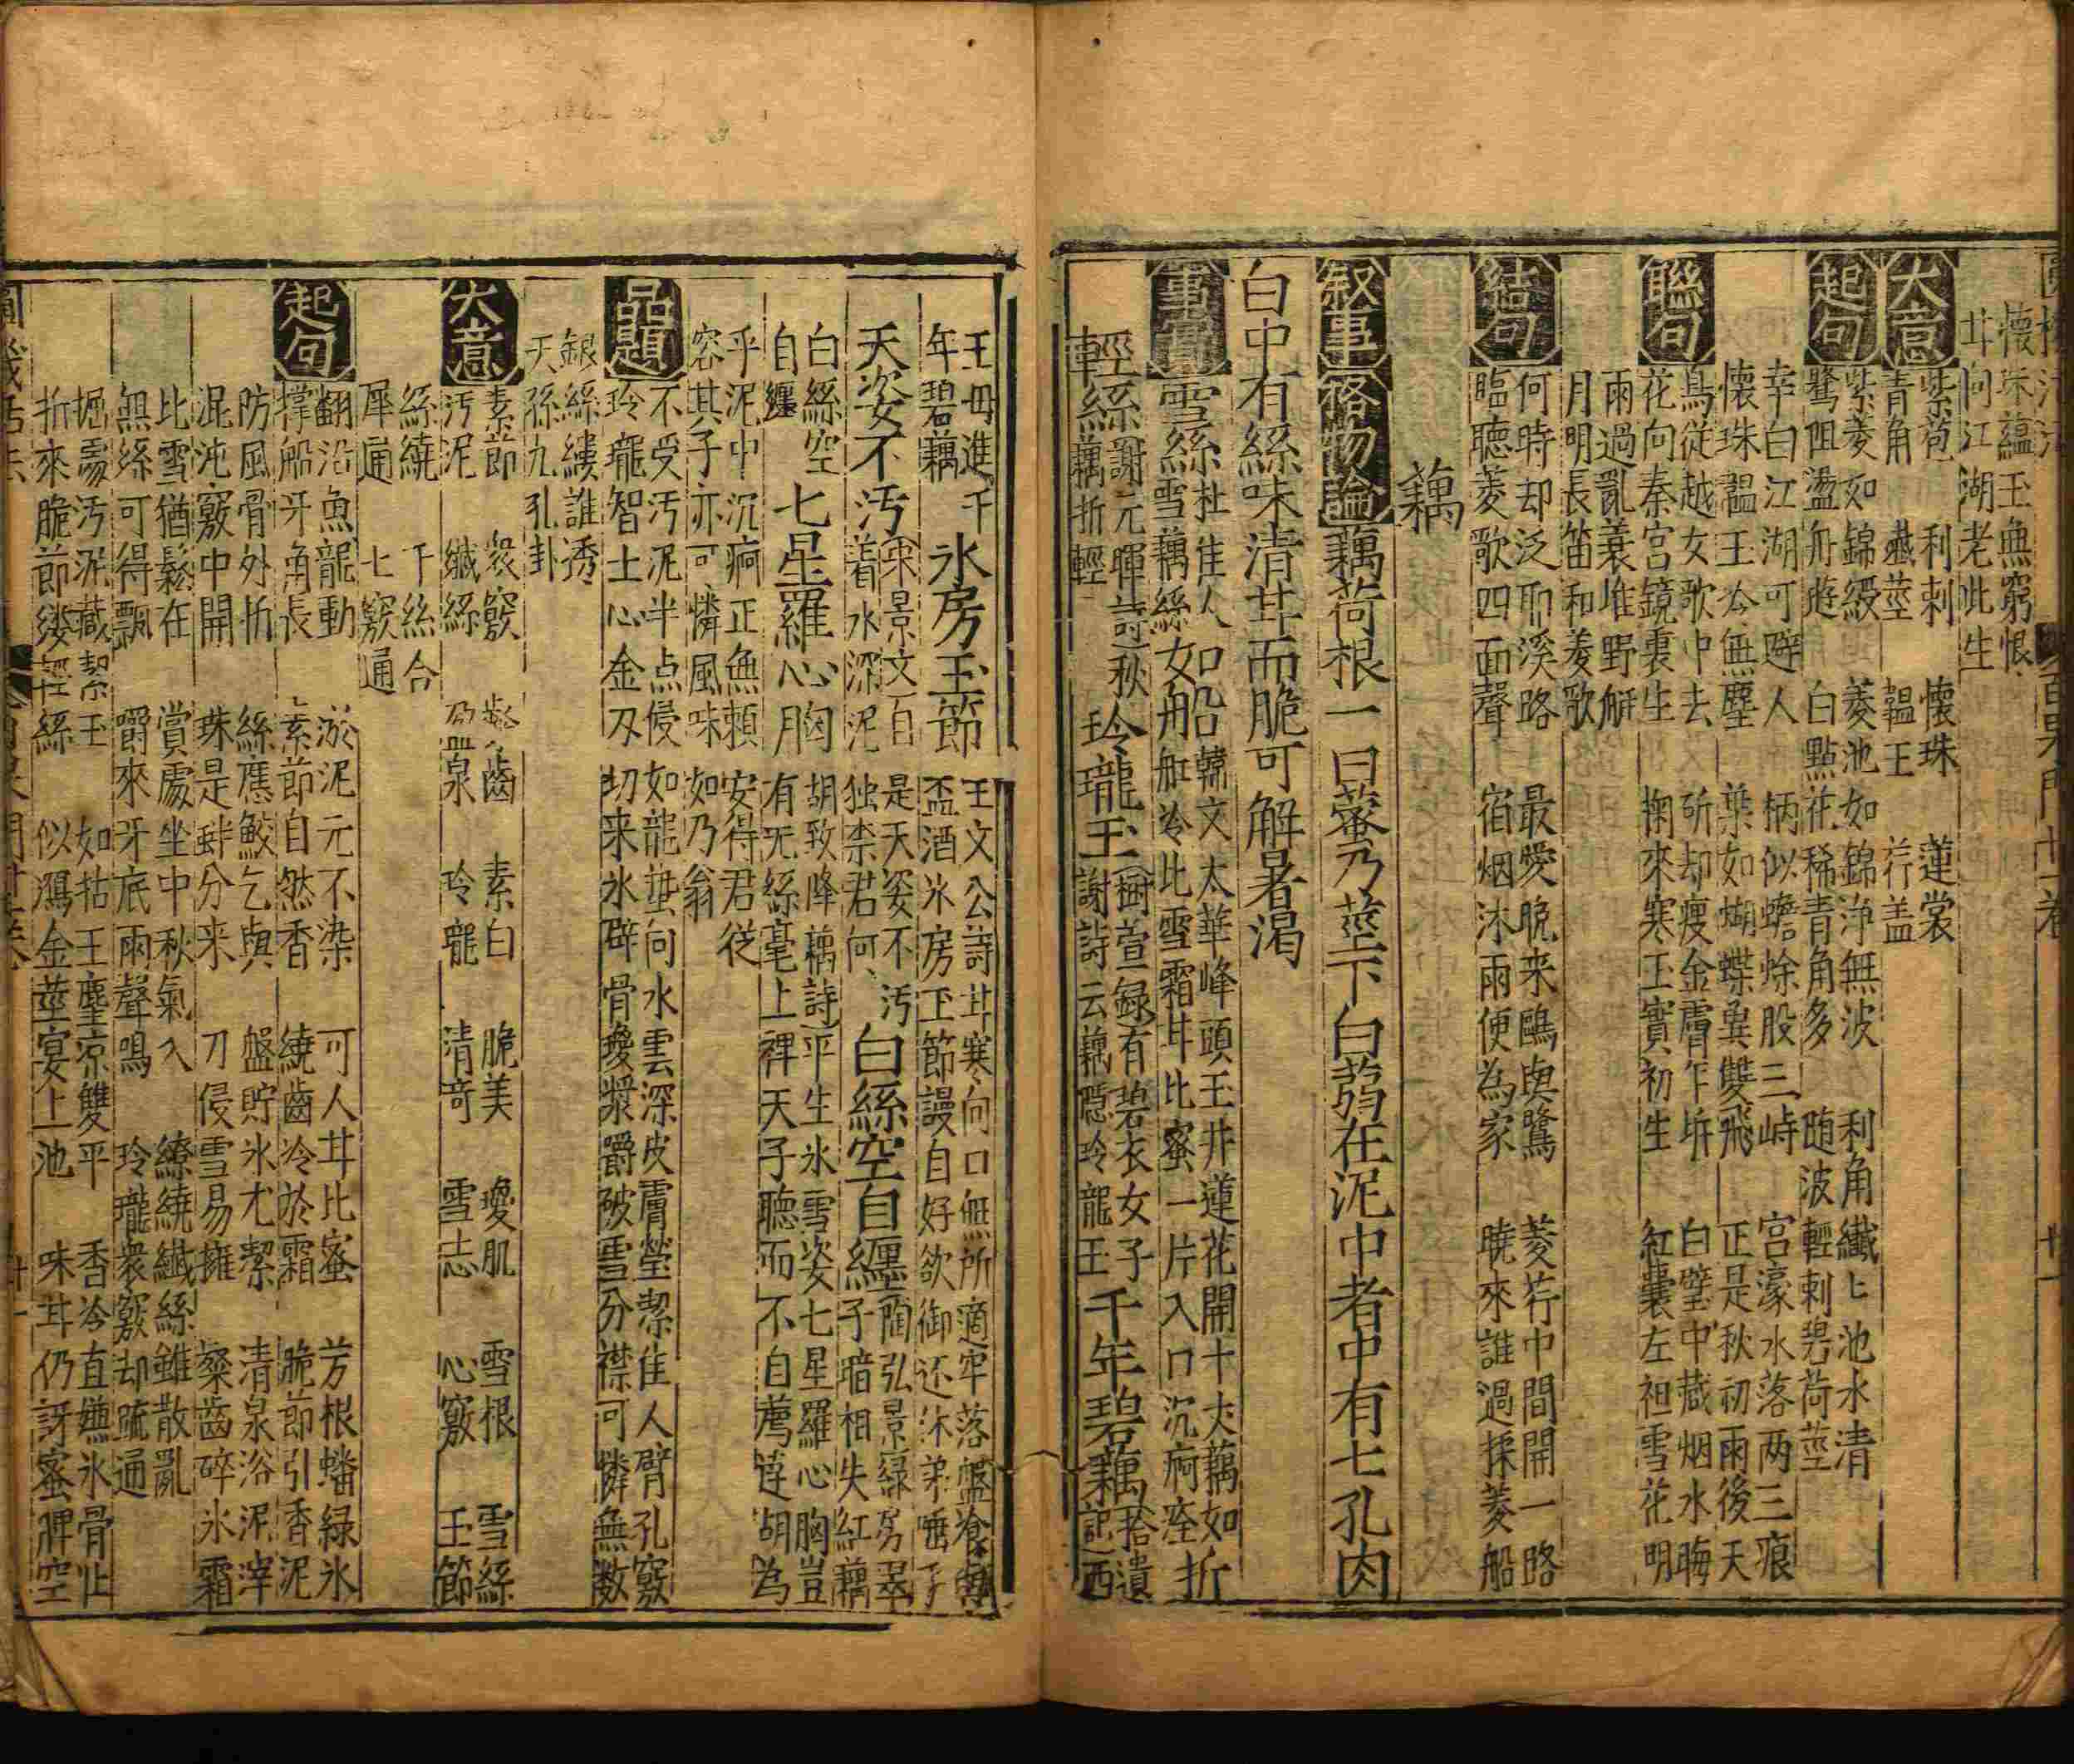 懷珠蘊玉無窮恨
甘向江湖老此生
大意
紫苞 利刺 懷珠 蓮裳
青角 燕莖 韞玉 荇盖
起句
紫菱如錦綬 菱池如錦淨無波 利角纖匕池水清
鷺但盪舟遊 白點花稀青角多 随波輕刺碧荷莖
聯句
幸白江湖可避人 柄似蟾蜍股三峙 宮濠水落两三痕
懷珠韞玉冷無塵 葉如蝴蝶異雙飛 正是秋初雨後天
鳥從越女歌中去 斫却瘦金膚乍拆 白璧中藏烟水晦
花向秦宮鏡裏生 掬來寒玉實初生 紅囊左袒雪花明
雨過亂蓑堆野艇
月明長笛和菱歌
結句
何時却泛耶溪路 最愛晚来鷗與鷺 菱荇中間開一路
臨聽菱歌四面聲 宿烟沐雨便為家 曉來誰過採菱船
藕
叙事 格物論 藕荷根一曰蔤乃莖下白蒻在泥中者中有七孔肉
白中有絲味清甘而脆可解暑渴
事實 雪絲 杜佳人雪藕絲 女口船 韓文太華峰頭玉井蓮花開十丈藕如船冷比雪霜甘比蜜一片入口沉痾痊 折
輕絲 謝元暉詩秋藕折輕絲 玲瓏玉 樹萱録有碧衣女子謝詩云藕隱玲瓏玉 千年碧藕 拾遺記西
王毋進千年碧藕 氷房玉節 王文公詩甘寒向口無所適牢落盤飧
盃酒氷房玉節謾自好欲御还休弟唾子
天姿不汚 宋景文百着水深泥是天姿不汚独柰君何 白絲空自纏 陶弘景緑房翠子暗相失紅藕
白絲空自纏 七星羅心胸 胡致降藕詩平生氷雪姿七星羅心胸豈
有无絲毫上裨天子聽而不自薦達胡為
乎泥中沉痾正無頼安得君従
容其子亦可憐風味如乃翁
品題
不受汚泥半点侵 如龍蛰向水雲深 皮膚瑩潔佳人臂 孔竅
玲瓏智士心 金刄切来氷碎骨 瓊漿嚼破雪分襟 可憐無数
銀絲縷誰透
天孫九孔卦
大意
素節 衆竅 齾齒 素白 脆美 瓊肌 雪根 雪絲
汚泥 纎絲 及泉 玲瓏 清奇 雪志 心竅 玉節
絲繞 千絲合
犀通 七竅通
起句
翻沿魚龍動 淤泥元不染 可人甘比蜜 芳根蟠緑氷
撑船牙角長 素節自然香 繞齒冷於霜 脆節引香泥
防風骨外折 絲應鮫乞與 盤貯氷尤潔 清泉浴泥滓
混沌竅中開 珠是蚌分来 刀侵雪易擁 粲齒碎氷霜
比雪猶鬆在 賞處坐中秋氣入 繚繞纎絲雖散亂
無絲可得飄 嚼來牙底雨聲鳴 玲瓏衆竅却䟽通
掘處汚泥藏潔玉 如拈玉塵凉雙平 香冷直嫌氷骨止
折來脆節縷輕絲 似瀉金莖宴上池 味甘仍訝蜜脾空